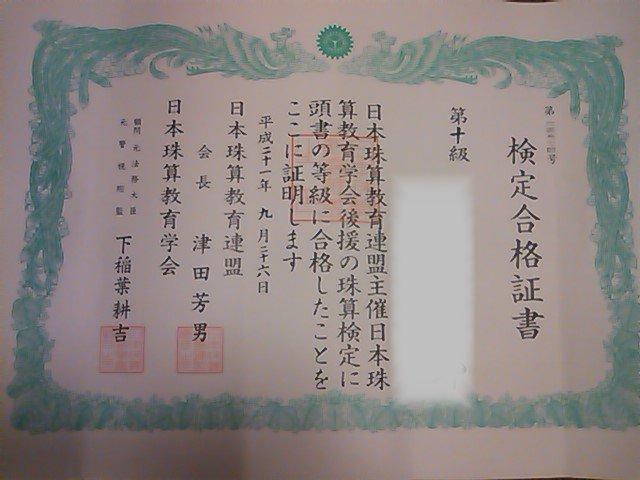 検定合格証書
第十級
日本珠算教育連盟主催日本珠
算教育学会後援の珠算検定に
頭書の等級に合格したことを
ここに証明します
平成二十一年 九月二十六日
日本珠算教育連盟
会長 津田芳男
日本珠算教育学会
顧問 元法務大臣
元警視総監
下稲葉耕吉